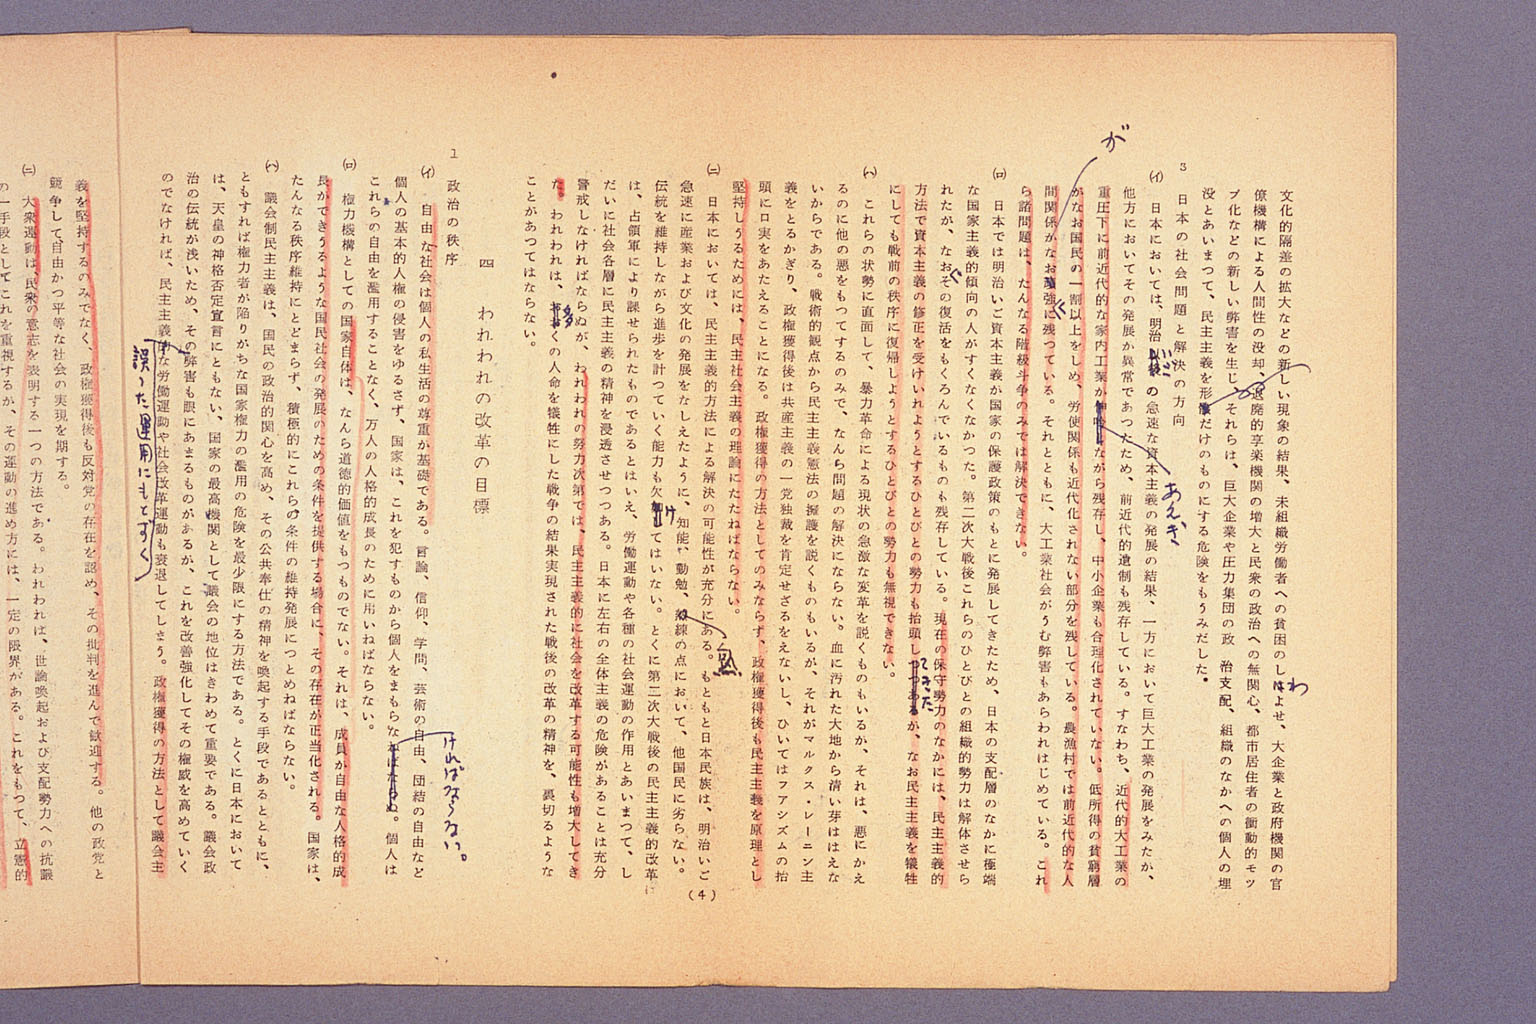 文化的隔差の拡大などの新しい現象の結果、未組織労働者への貧困のしはよせ、大企業と政府機関の官
わ
僚機構による人間性の没却、退廃的享楽機関の増大と民衆の政治への無関心、都市居住者の衝動的モツ
ブ化などの新しい弊害を生じ、それらは、巨大企業や圧力集団の政 治支配、組織のなかへの個人の埋
没とあいまつて、民主主義を形だけのものにする危険をもうみだした。
3 日本の社会問題と解決の方向
(イ) 日本においては、明治の急速な資本主義の発展の結果、一方において巨大工業の発展をみたが、
いご
他方においてその発展が異常であつたため、前近代的遺制も残存している。すなわち、近代的大工業の
あえぎ
重圧下に前近代的な家内工業が呻吟しながら残存し、中小企業も合理化されていない。低所得の貧窮層
がなお国民の一割以上をしめ、労使関係も近代化されない部分を残している。農漁村では前近代的な人
が
間関係がなお強に残つている。それとともに、大工業社会がうむ弊害もあらわれはじめている。これ
ら諸問題は、たんなる階級斗争のみでは解決できない。
(ロ) 日本では明治いご資本主義が国家の保護政策のもとに発展してきたため、日本の支配層のなかに極端
な国家主義的傾向の人がすくなくなかつた。第二次大戦後これらのひとびとの組織的勢力は解体させら
れたが、なおその復活をもくろんでいるものも残存している。現在の保守勢力のなかには、民主主義的
方法で資本主義の修正を受けいれようとするひとびとの勢力も抬頭しつつあるが、なお民主主義を犠牲
てきた
にしても戦前の秩序に復帰しようとするひとびとの勢力も無視できない。
(ハ) これらの状勢に直面して、暴力革命による現状の急激な変革を説くものもいるが、それは、悪にかえ
るのに他の悪をもつてするのみで、なんら問題の解決にならない。血に汚れた大地から清い芽ははえな
いからである。戦術的観点から民主主義憲法の擁護を説くものもいるが、それがマルクス・レーニン主
義をとるかぎり、政権獲得後は共産主義の一党独裁を肯定せざるをえないし、ひいてはフアシズムの抬
頭に口実をあたえることになる。政権獲得の方法としてのみならず、政権獲得後も民主主義を原理とし
堅持しうるためには、民主社会主義の理論にたたねばならない。
(ニ) 日本においては、民主主義的方法による解決の可能性が充分にある。もともと日本民族は、明治いご
急速に産業および文化の発展をなしえたように、知能、勤勉、練の点において、他国民に劣らない。
熟
伝統を維持しながら進歩を計つていく能力も欠けてはいない。とくに第二次大戦後の民主主義的改革
は、占領軍により課せられたものであるとはいえ、労働運動や各種の社会運動の作用とあいまつて、し
だいに社会各層に民主主義の精神を浸透させつつある。日本に左右の全体主義の危険があることは充分
警戒しなければならぬが、われわれの努力次第では、民主主義的に社会を改革する可能性も増大してき
た。われわれは、多くの人命を犠牲にした戦争の結果実現された戦後の改革の精神を、裏切るような
ことがあつてはならない。
(4)
四 われわれの改革の目標
1 政治の秩序
(イ) 自由な社会は個人の私生活の尊重が基礎である。言論、信仰、学問、芸術の自由、団結の自由など
個人の基本的人権の侵害をゆるさず、国家は、これを犯すものから個人をまもらなければならぬ。個人は
ければならない。
これらの自由を濫用することなく、万人の人格的成長のために用いねばならない。
(ロ) 権力機構としての国家自体は、なんら道徳的価値をもつものでない。それは、成員が自由な人格的成
長ができうるような国民社会の発展のための条件を提供する場合に、その存在が正当化される。国家は、
たんなる秩序維持にとどまらず、積極的にこれらの条件の維持発展につとめねばならない。
(ハ) 議会制民主主義は、国民の政治的関心を高め、その公共奉仕の精神を喚起する手段であるとともに、
ともすれば権力者が陥りがちな国家権力の濫用の危険を最少限にする方法である。とくに日本において
は、天皇の神格否定宣言にともない、国家の最高機関として議会の地位はきわめて重要である。議会政
治の伝統が浅いため、その弊害も眼にあまるものがあるが、これを改善強化してその権威を高めていく
のでなければ、民主主義的な労働運動や社会改革運動も衰退してしまう。政権獲得の方法として議会主
誤った運用にもとずく
義を堅持するのみでなく、政権獲得後も反対党の存在を認め、その批判を進んで歓迎する。他の政党と
競争して、自由かつ平等な社会の実現を期する。
(ニ) 大衆運動は、民衆の意志を表明する一つの方法である。われわれは、世論喚起および支配勢力への抗議
の一手段としてこれを重視するが、その運動の進め方には、一定の限界がある。これをもつて、立憲的